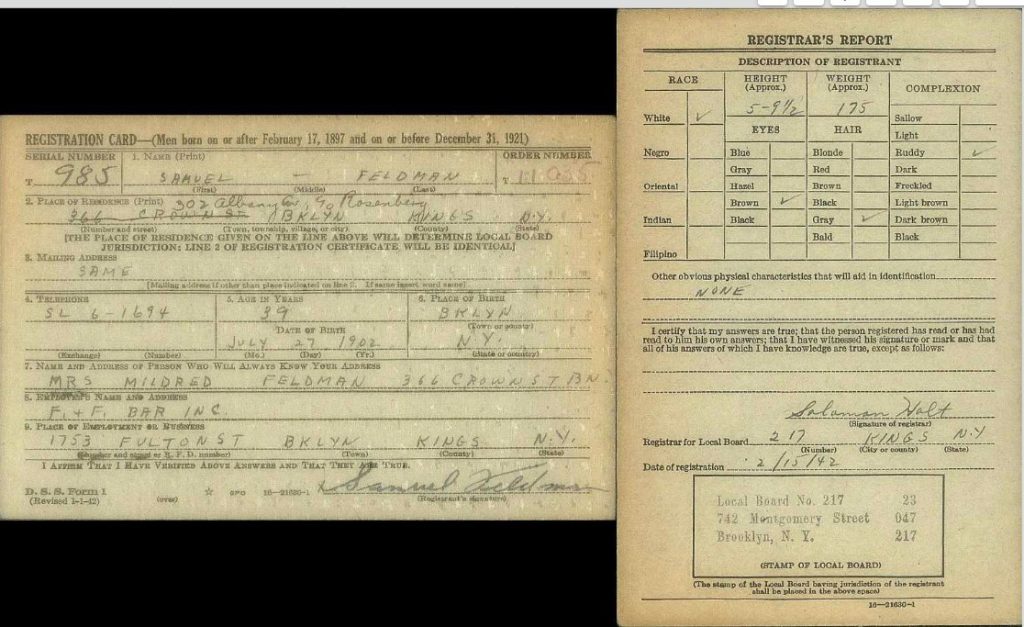 REGISTRATION CARD—(Men born on or after February 17, 1897 and on or before December 31, 1921)
SERIAL NUMBER
1. NAME (Print)
ORDER NUMBER
T 985
SAMUEL — FELDMAN
T 11055
(First) (Middle) (Last)
2. PLACE OF RESIDENCE (Print)
302 Albany Av, c/o Rosenberg
366 CROWN ST BKLYN KINGS N.Y.
(Number and street) (Town, township, village, or city) (County) (State)
[THE PLACE OF RESIDENCE GIVEN ON THE LINE ABOVE WILL DETERMINE LOCAL BOARD
JURISDICTION; LINE 2 OF REGISTRATION CERTIFICATE WILL BE IDENTICAL]
3. MAILING ADDRESS
SAME
[Mailing address if other than place indicated on line 2. If same insert word same]
4. TELEPHONE
5. AGE IN YEARS
6. PLACE OF BIRTH
SL 6-1694
39
BKLYN
(Town or county)
DATE OF BIRTH
JULY 27 1902
N.Y.
(Exchange) (Number)
(Mo.) (Day) (Yr.)
(State or country)
7. NAME AND ADDRESS OF PERSON WHO WILL ALWAYS KNOW YOUR ADDRESS
MRS MILDRED FELDMAN 366 CROWN ST BN
8. EMPLOYER'S NAME AND ADDRESS
F. + F. BAR INC.
9. PLACE OF EMPLOYMENT OR BUSINESS
1753 FULTON ST BKLYN KINGS N.Y.
(Number and street or R. F. D. number) (Town) (County) (State)
I AFFIRM THAT I HAVE VERIFIED ABOVE ANSWERS AND THAT THEY ARE TRUE.
D. S. S. Form 1
(Revised 1-1-42)
(over)
GPO 16—21630-1
X Samuel Feldman
(Registrant's signature)
REGISTRAR'S REPORT
DESCRIPTION OF REGISTRANT
RACE
HEIGHT
(Approx.)
WEIGHT
(Approx.)
COMPLEXION
5-9½
175
White ✓
Sallow
EYES
HAIR
Light
Negro
Blue
Blonde
Ruddy ✓
Gray
Red
Dark
Oriental
Hazel
Brown
Freckled
Brown ✓
Black
Light brown
Indian
Black
Gray ✓
Dark brown
Bald
Black
Filipino
Other obvious physical characteristics that will aid in identification
NONE
I certify that my answers are true; that the person registered has read or has had
read to him his own answers; that I have witnessed his signature or mark and that
all of his answers of which I have knowledge are true, except as follows:
Solomon Holt
(Signature of registrar)
Registrar for Local Board 217 KINGS N.Y
(Number) (City or county) (State)
Date of registration 2/15/42
Local Board No. 217 23
742 Montgomery Street 047
Brooklyn, N. Y. 217
(STAMP OF LOCAL BOARD)
(The stamp of the Local Board having jurisdiction of the registrant
shall be placed in the above space)
16—21630-1